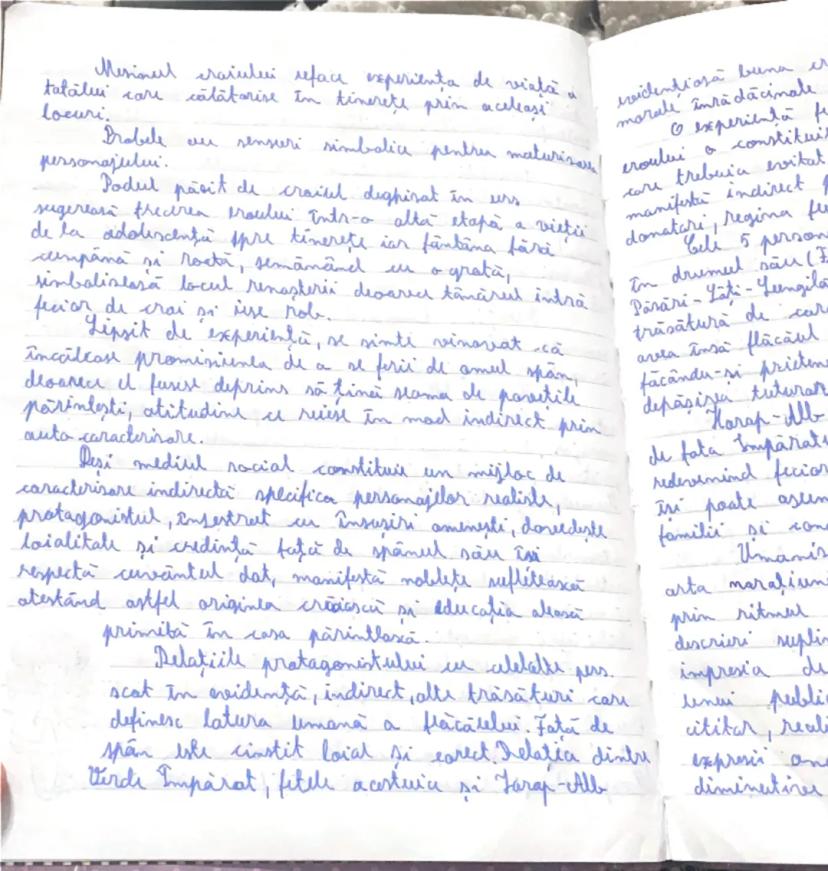 Mezinul craiului reface experiența de viață a
tatălui care călătorise în tinerețe prin aceleași
locuri.
Probele au sensuri simbolice pentru maturizarea
personajului.
Podul păzit de craiul deghizat în urs
sugerează trecerea eroului într-o altă etapă a vieții
de la adolescență spre tinerețe iar fântâna fără
cumpănă și roată, semănând cu o grotă,
simbolizează locul renașterii deoarece tânărul intră
fecior de crai și iese rob.
Lipsit de experiență, se simte vinovat că
încălcase promisiunea de a se feri de omul spân,
deoarece el fusese deprins să țină seama de povețile
părintești, atitudine ce reiese în mod indirect prin
auto caracterizare.
Deși mediul social constituie un mijloc de
caracterizare indirectă specifica personajelor realiste,
protagonistul, înzestrat cu însușiri omenești, dovedește
loialitate și credință față de spânul său își
respectă cuvântul dat, manifestă noblețe sufletească
atestând astfel originea crăiască și educația aleasă
primită în casa părintească.
Relațiile protagonistului cu celelalte pers.
scot în evidență, indirect, alte trăsături care
definesc latura umană a flăcăului. Față de
spân este cinstit loial și corect. Relația dintre
Verde Împărat, fetele acestuia și Harap-Alb
evidențiază buna
morale înrădăcinate
O experiență
eroului o constituie
care trebuia evitat
manifestă indirect
donatori, regina
Cele 5
în drumul său
Păsări-Lăți-Lungilă
trăsătură de
avea însă flăcăul
făcându-și
depășirea tuturor
Harap-Alb
de fata Împăratu
redevenind fecior
își poate
familii și
Umanis
arta narațiuni
prin ritmul
descrieri
impresia de
unui public
cititor,
expresii
diminutive